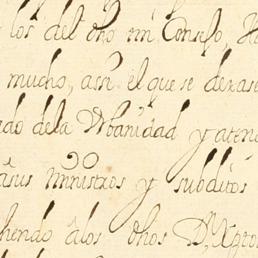 los del dho mi Consejo,
mucho, assi el que se dexase
de la Vrbanidad y aten
âsus ministros y subditos
hendo âlos dhos D, Xpto